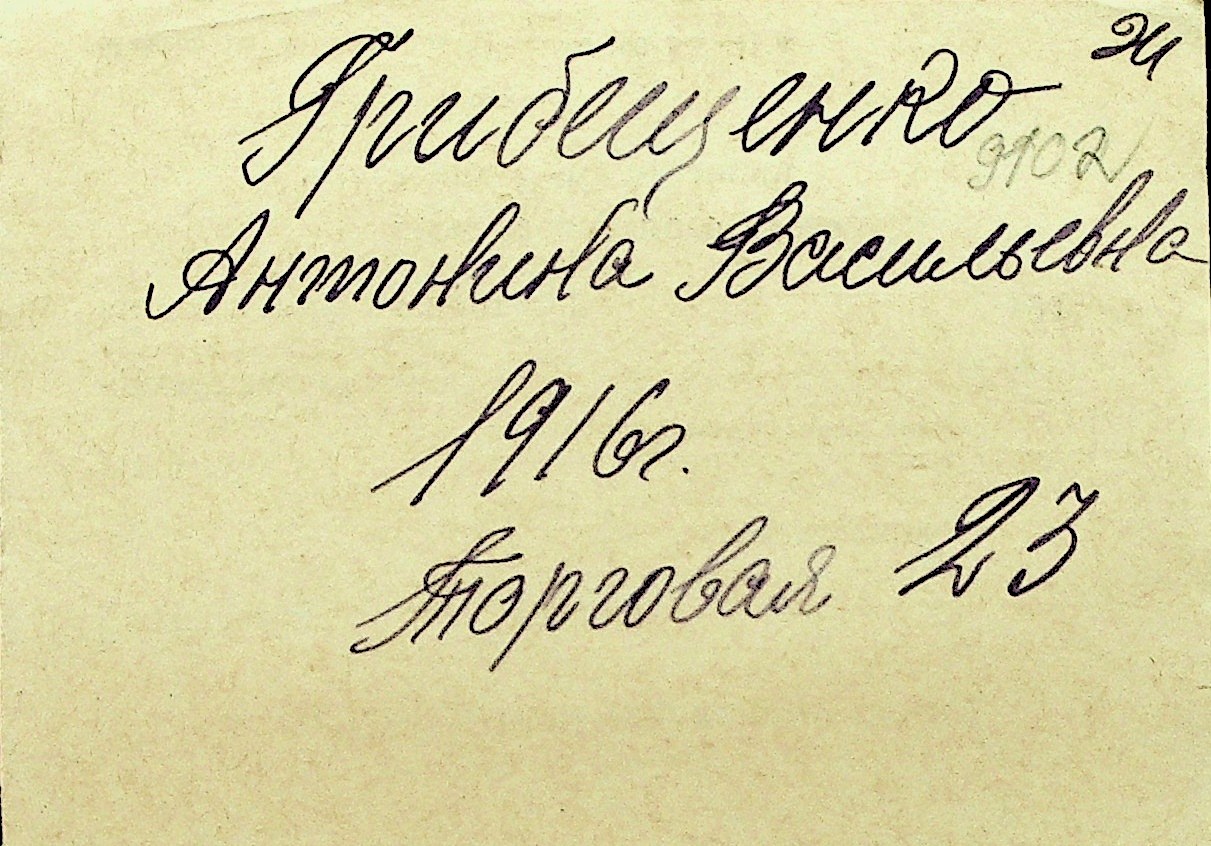 Грибещенко ж
9102
Антонина Васильевна
1916г.
Торговая 23